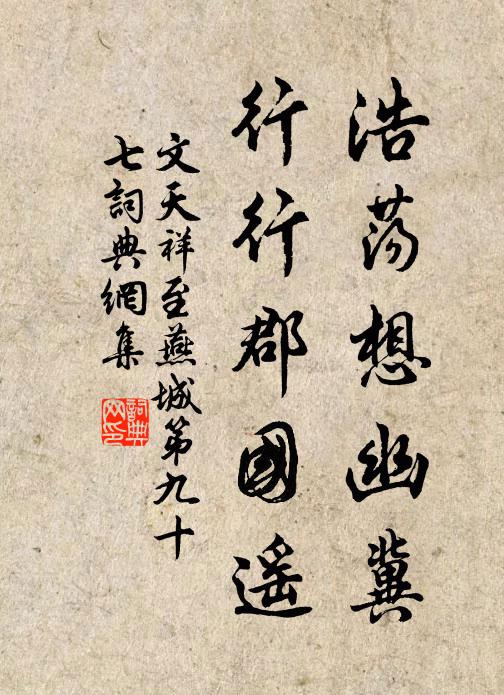 浩蕩想幽冀
行行郡國遥
文天祥至燕城第九十
七詞典網集
詞典
网印